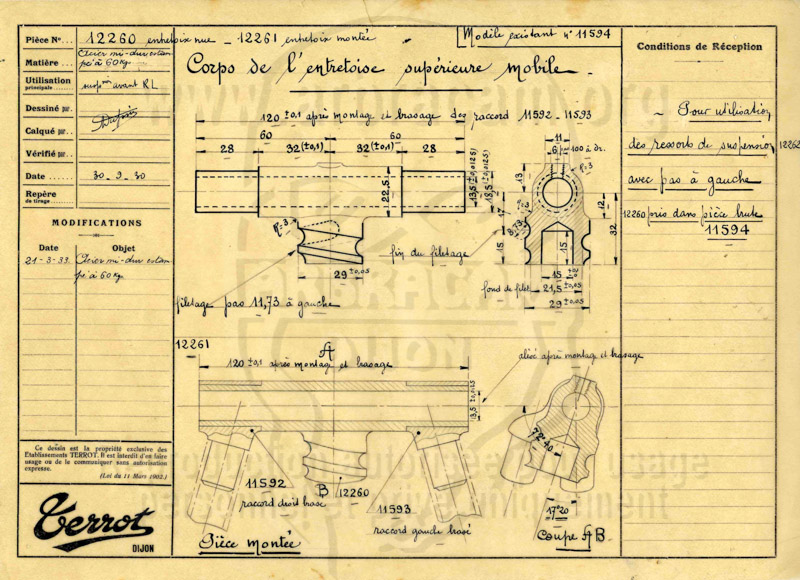 Pièce No... 12260 entretoix nue - 12261 entretoix montée
Modèle existant n° 11594
Matière... Acier mi-dur estam
pé à 60 Kg
Utilisation
principale...... susp avant RL
Dessiné par.
Calqué par.
Vérifié par..
Date ...... 30_9_30
Repère
de tirage.......
MODIFICATIONS
Date Objet
21-3-33. Acier mi-dur estam
pé à 60 Kg
Ce dessin est la propriété exclusive des
Etablissements TERROT. Il est interdit d'en faire
usage ou de le communiquer sans autorisation
expresse.
(Loi du 11 Mars 1902.)
Terrot
DIJON
Corps de l'entretoise supérieure mobile_
120 ±0,1 après montage et brasage des raccord 11592_11593
60 60
28 32(±0,1) 32(±0,1) 28
22,5
13,5
18,5
r=3
29 ±0,05
filetage pas 11,73 à gauche
fin du filetage
11
6 100 à dr.
r=3
13
17
r=3
8,73
15
12
32
15
15
fond de filet 21,5 ±0,05
29 ±0,05
12261
A
120 ±0,1 après montage et brasage
alésé après montage et brasage
13,5 ±0,025
11592
raccord droit brasé
B
12260
11593
raccord gauche brasé
Pièce montée
72°40
17°20
Coupe AB
Conditions de Réception
_ Pour utilisation
des ressorts de suspension 12262
avec pas à gauche
12260 pris dans pièce brute
11594